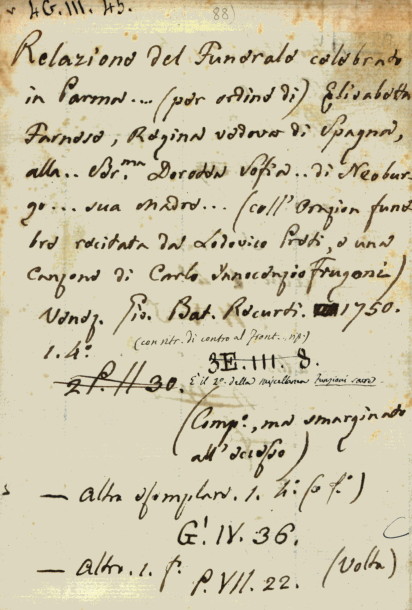 4G.III.45.
88)
Relazione del Funerale celebrato
in Parma... (per ordine di) Elisabetta
Farnese, Regina vedova di Spagna,
alla.. Ser.ma Dorotea Sofia.. di Neobur-
go... sua Madre... (coll' Orazion fune-
bre recitata da Lodovico Preti, e una
Canzone di Carlo Innocenzio Frugoni)
Venez. Gio. Bat. Recurti. 1750.
1. 4.º
(con ritr. di contro al Front. np.)
3E.III.8.
2P.II 30. È il 2º. della Miscellanea Funzioni sacre
(Comp.º, ma smarginato
all'eccesso)
— Altro esemplare. 1. 4.º (o f.º)
G.I.IV.36.
— Altro. 1. f.º (Volta)
P.VII.22.